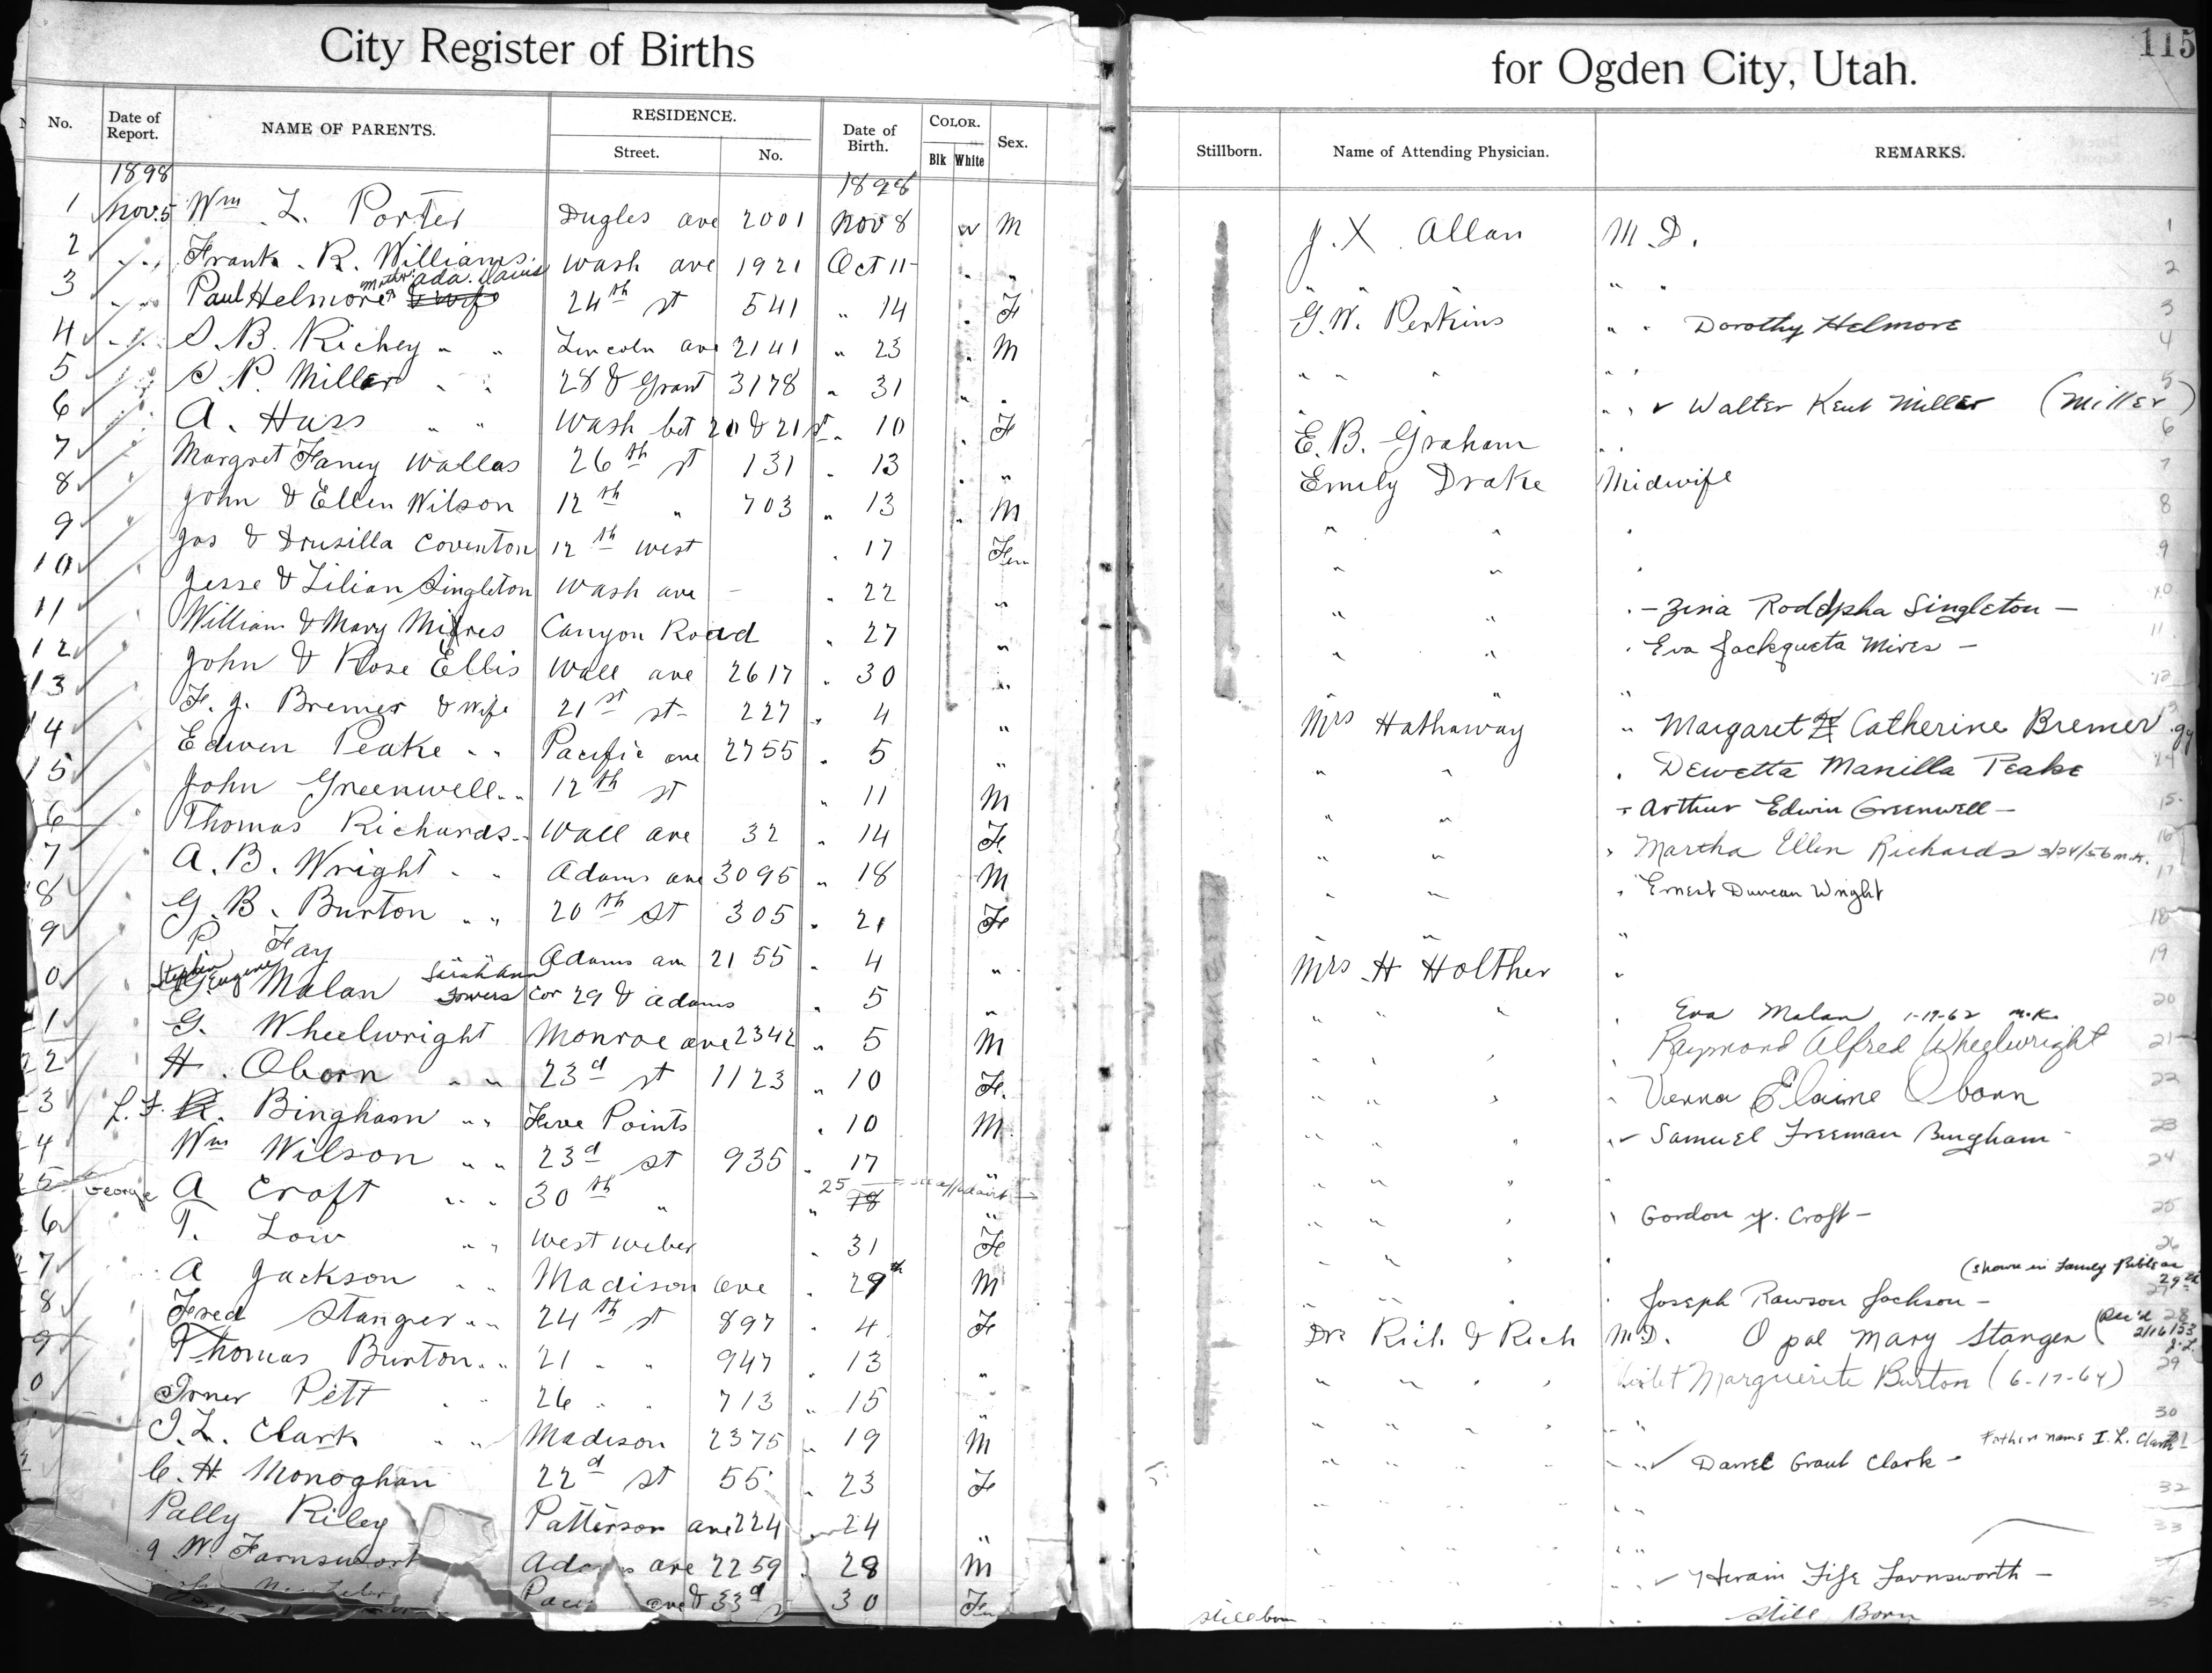 City Register of Births for Ogden City, Utah. 115
No. Date of Report. NAME OF PARENTS. RESIDENCE. Street. No. Date of Birth. COLOR. Blk White Sex. Stillborn. Name of Attending Physician. REMARKS.
1898 1898
1 Nov. 5 Wm L. Porter Dugles ave 2001 Nov 8 w M J. X. Allan M.D. 1
2 Frank. R. Williams. Wash ave 1921 Oct 11 " " " " 2
3 Paul Helmore mother ada. Davis & wife 24th st 541 " 14 F G. W. Perkins " " Dorothy Helmore 3
4 S. B. Richey " " Lincoln ave 2141 " 23 M " " " 4
5 S P. Miller " " 28 & Grant 3178 " 31 " " " Walter Kent Miller (Miller) 5
6 A. Huss " " Wash bet 20 & 21 st " 10 F E. B. Graham " " 6
7 Margret Fancy Wallas 26th st 131 " 13 " Emily Drake Midwife 7
8 John & Ellen Wilson 12th " 703 " 13 M " " " 8
9 Jas & Drusilla Coventon 12th West " 17 Fem " " " 9
10 Jesse & Lilian Singleton Wash ave - " 22 " " " " - Zina Rodolpha Singleton - 10
11 William & Mary Mires Canyon Road " 27 " " " " Eva Jackqueta Mires - 11
12 John & Rose Ellis Wall ave 2617 " 30 " " " " 12
13 F. J. Bremer & Wife 21st st - 227 " 4 " Mrs Hathaway " Margaret Catherine Bremer 13
14 Edwin Peake " " Pacific ave 2755 " 5 " " " " Dewetta Manilla Peake 14
15 John Greenwell " " 12th st " 11 M " " - Arthur Edwin Greenwell - 15
6 Thomas Richards " Wall ave 32 " 14 F. " " " Martha Ellen Richards 3/24/56 m.k. 16
7 A. B. Wright " " Adams ave 3095 " 18 M " " " Ernest Duncan Wright 17
8 G. B. Burton " " 20th st 305 " 21 F " " 18
9 P. Fay " " Adams ave 2155 " 4 " Mrs H Holther " 19
0 Stephen Eugene Malan Sarah Ann Towers Cor 29 & Adams " 5 " " " " " Eva Malan 1-17-62 m.k. 20
21 G. Wheelwright Monroe ave 2342 " 5 M " " " " Raymond Alfred Wheelwright 21
22 H. Oborn " " 23d st 1123 " 10 F. " " " " Verna Elaine Oborn 22
3 L. F. R. Bingham " " Five Points " 10 M. " " " " Samuel Freeman Bingham 23
4 Wm Wilson " " 23d st 935 " 17 " " " " 24
5 George A Croft " " 30th " " 25 18 affidavit " " " " Gordon y. Croft - 25
6 T. Low " " West Weber " 31 F " " " " 26
7 A Jackson " " Madison ave " 29th M " " " " Joseph Rawson Jackson - (shown in Family Bible as 29th 27
8 Fred Stanger " " 24th st 897 " 4 F Drs Rich & Rich M.D. Opal Mary Stanger (Rec'd 2/16/53 J.L. 28
9 Thomas Burton " " 21 " " 947 " 13 " " " " " Violet Marguerite Burton (6-17-64) 29
0 Irner Pett " " 26 " " 713 " 15 " " " " " " " 30
I. L. Clark " " Madison 2375 " 19 M " " " " " " Darrel Grant Clark - Father name I. L. Clark 31
C. H Monoghan 22d st 55 " 23 F " " " " " " 32
Pally Riley Patterson ave 224 " 24 " " " " " " " 33
W. Farnswort Adams ave 2259 " 28 M " " " " " " Hiram Fife Farnsworth - 34
ave & 33d 30 Fem stillborn " " " " " " Still Born 35